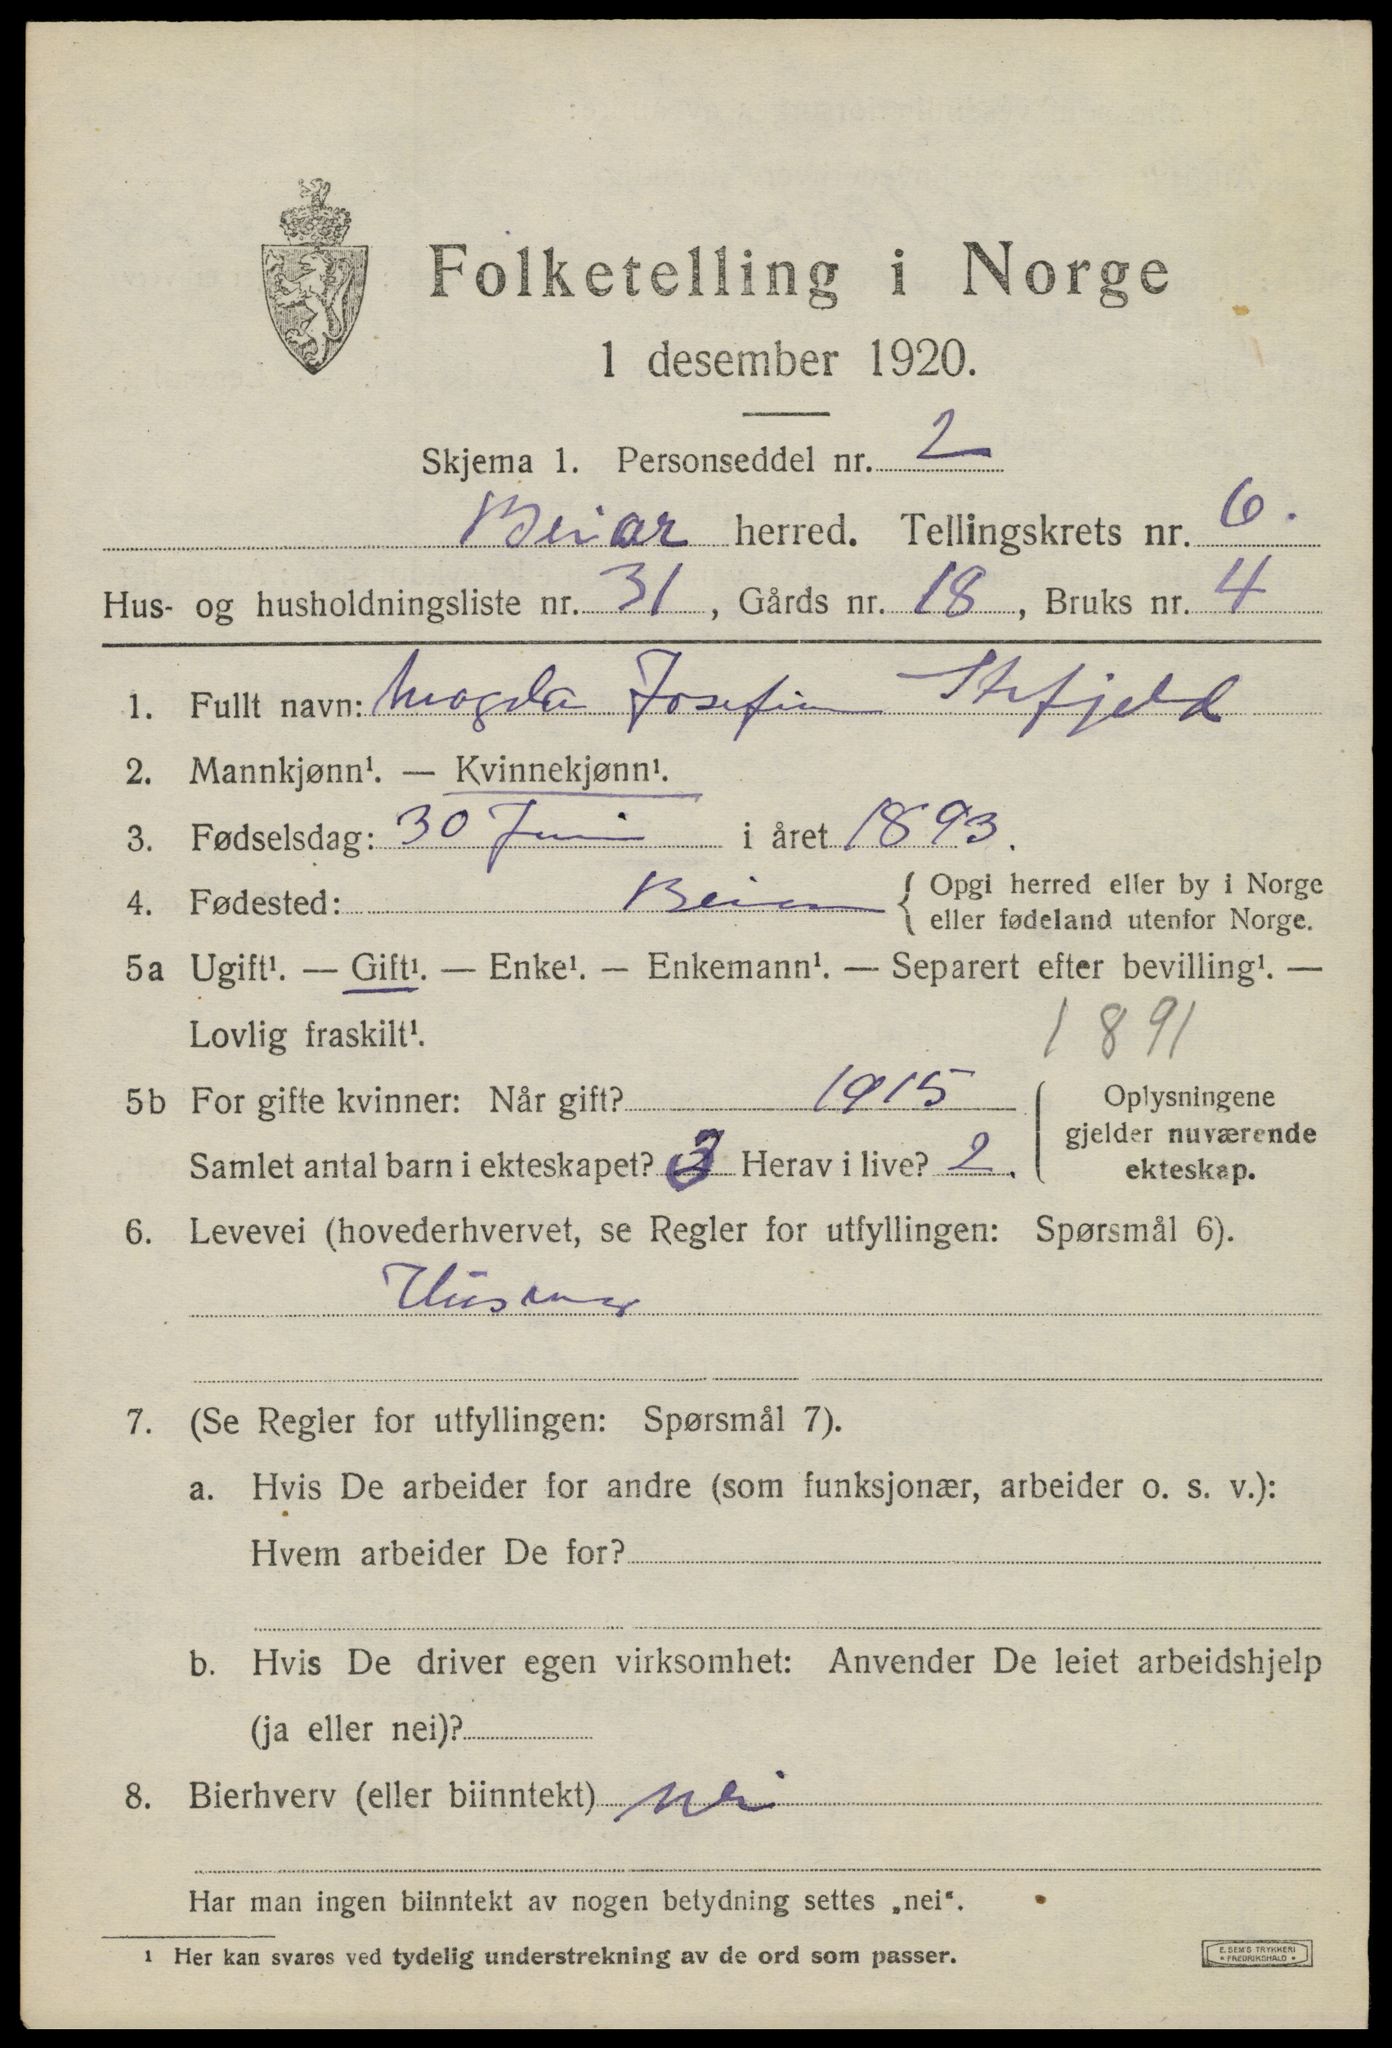 Folketelling i Norge
1 desember 1920.
Skjema 1. Personseddel nr. 2
Beiar herred. Tellingskrets nr. 6.
Hus- og husholdningsliste nr. 31, Gårds nr. 18, Bruks nr. 4
1. Fullt navn: Magda Josefine
2. Mannkjønn¹. — Kvinnekjønn¹.
3. Fødselsdag: 30 Juni i året 1893.
4. Fødested: Beiarn { Opgi herred eller by i Norge
eller fødeland utenfor Norge.
5a Ugift¹. — Gift¹. — Enke¹. — Enkemann¹. — Separert efter bevilling¹. —
Lovlig fraskilt¹. 1891
5b For gifte kvinner: Når gift? 1915
Samlet antal barn i ekteskapet? 3 Herav i live? 2.
Oplysningene
gjelder nuværende
ekteskap.
6. Levevei (hovederhvervet, se Regler for utfyllingen: Spørsmål 6).
Husmor
7. (Se Regler for utfyllingen: Spørsmål 7).
a. Hvis De arbeider for andre (som funksjonær, arbeider o. s. v.):
Hvem arbeider De for?
b. Hvis De driver egen virksomhet: Anvender De leiet arbeidshjelp
(ja eller nei)?
8. Bierhverv (eller biinntekt) nei
Har man ingen biinntekt av nogen betydning settes „nei“.
¹ Her kan svares ved tydelig understrekning av de ord som passer.
E. SEM'S TRYKKERI
• FREDRIKSHALD •